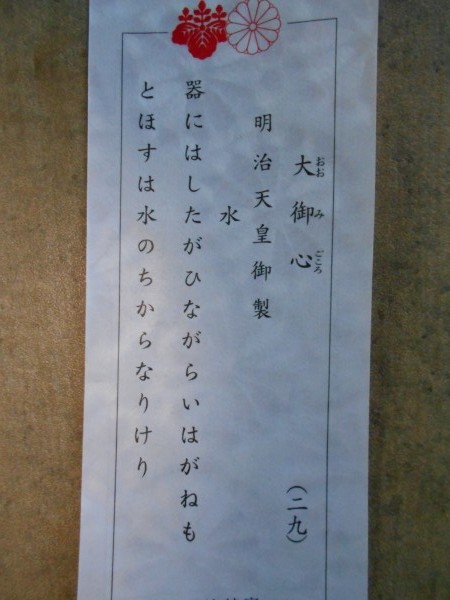 大御心
おおみごころ
(二九)
明治天皇御製
水
器にはしたがひながらいはがねも
とほすは水のちからなりけり